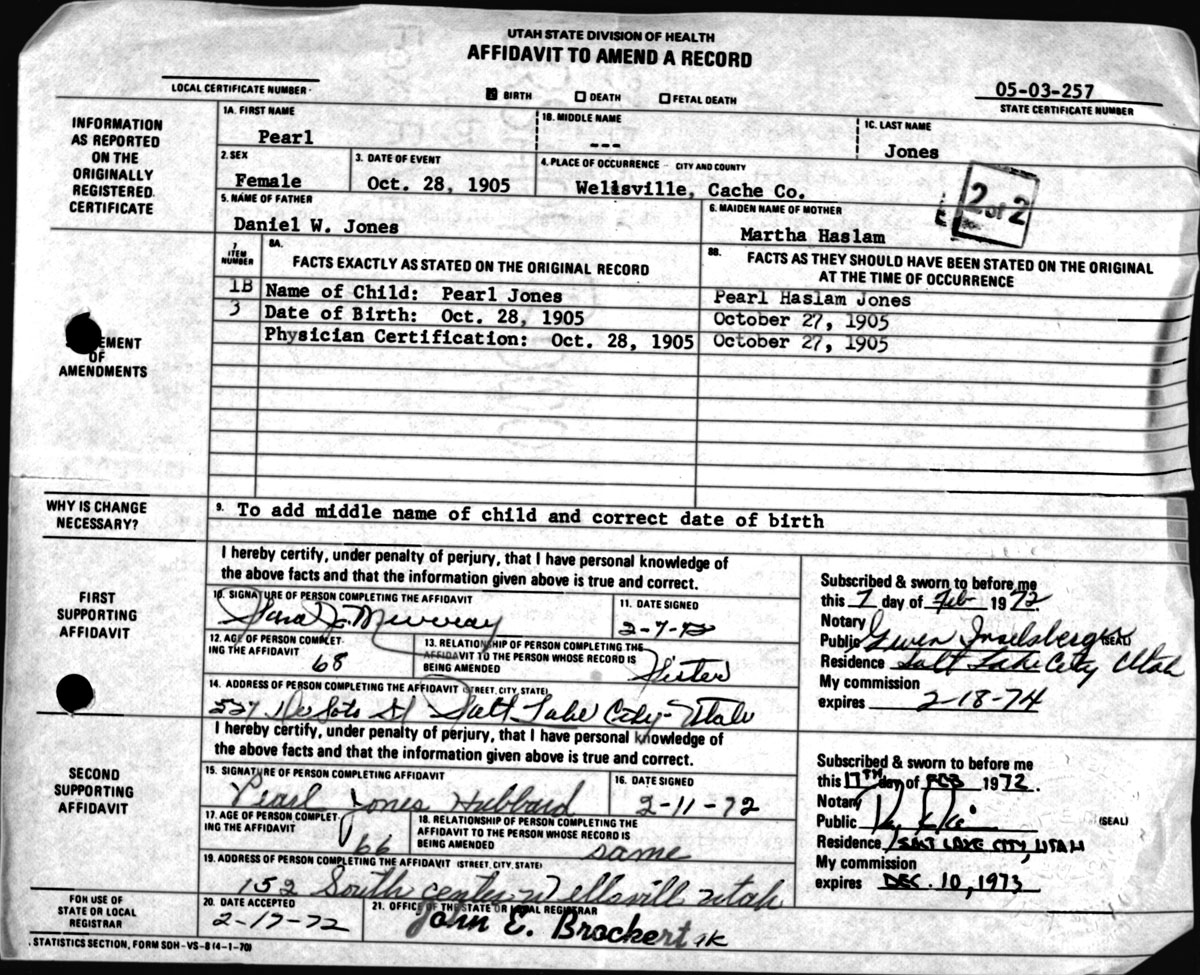 UTAH STATE DIVISION OF HEALTH
AFFIDAVIT TO AMEND A RECORD
LOCAL CERTIFICATE NUMBER
BIRTH DEATH FETAL DEATH
05-03-257
STATE CERTIFICATE NUMBER
INFORMATION
AS REPORTED
ON THE
ORIGINALLY
REGISTERED
CERTIFICATE
1A. FIRST NAME
Pearl
1B. MIDDLE NAME
---
1C. LAST NAME
Jones
2. SEX
Female
3. DATE OF EVENT
Oct. 28, 1905
4. PLACE OF OCCURRENCE - CITY AND COUNTY
Wellsville, Cache Co.
2 of 2
5. NAME OF FATHER
Daniel W. Jones
6. MAIDEN NAME OF MOTHER
Martha Haslam
7. ITEM NUMBER
8A. FACTS EXACTLY AS STATED ON THE ORIGINAL RECORD
8B. FACTS AS THEY SHOULD HAVE BEEN STATED ON THE ORIGINAL
AT THE TIME OF OCCURRENCE
1B Name of Child: Pearl Jones Pearl Haslam Jones
3 Date of Birth: Oct. 28, 1905 October 27, 1905
Physician Certification: Oct. 28, 1905 October 27, 1905
EMENT
OF
AMENDMENTS
WHY IS CHANGE
NECESSARY?
9. To add middle name of child and correct date of birth
FIRST
SUPPORTING
AFFIDAVIT
I hereby certify, under penalty of perjury, that I have personal knowledge of
the above facts and that the information given above is true and correct.
10. SIGNATURE OF PERSON COMPLETING THE AFFIDAVIT
Sara J. Murray
11. DATE SIGNED
2-7-72
12. AGE OF PERSON COMPLET-
ING THE AFFIDAVIT
68
13. RELATIONSHIP OF PERSON COMPLETING THE
AFFIDAVIT TO THE PERSON WHOSE RECORD IS
BEING AMENDED
Sister
14. ADDRESS OF PERSON COMPLETING THE AFFIDAVIT (STREET, CITY, STATE)
537 De Soto St Salt Lake City-Utah
Subscribed & sworn to before me
this 7 day of Feb 1972
Notary
Public Gwen Inselsberger (SEAL)
Residence Salt Lake City Utah
My commission
expires 2-18-74
SECOND
SUPPORTING
AFFIDAVIT
I hereby certify, under penalty of perjury, that I have personal knowledge of
the above facts and that the information given above is true and correct.
15. SIGNATURE OF PERSON COMPLETING AFFIDAVIT
Pearl Jones Hubbard
16. DATE SIGNED
2-11-72
17. AGE OF PERSON COMPLET-
ING THE AFFIDAVIT
66
18. RELATIONSHIP OF PERSON COMPLETING THE
AFFIDAVIT TO THE PERSON WHOSE RECORD IS
BEING AMENDED
same
19. ADDRESS OF PERSON COMPLETING THE AFFIDAVIT (STREET, CITY, STATE)
152 South center Wellsvill Utah
Subscribed & sworn to before me
this 17TH day of FEB 1972.
Notary
Public (SEAL)
Residence SALT LAKE CITY, UTAH
My commission
expires DEC. 10, 1973
FOR USE OF
STATE OR LOCAL
REGISTRAR
20. DATE ACCEPTED
2-17-72
21. OFFICE OF THE STATE OR LOCAL REGISTRAR
John E. Brockert
STATISTICS SECTION, FORM SDH-VS-8 (4-1-70)